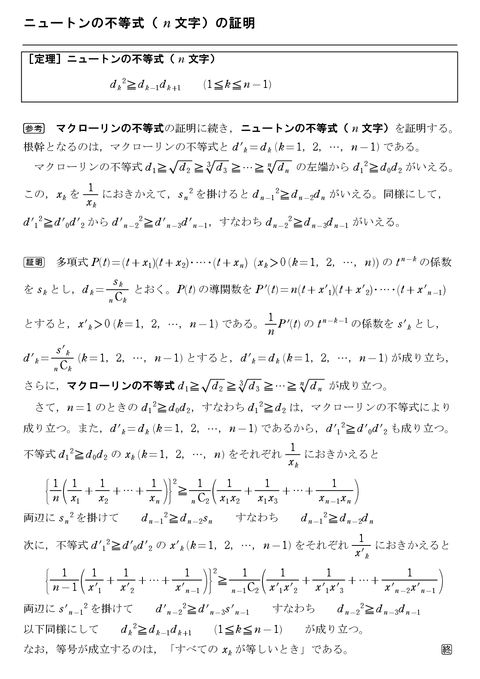 ニュートンの不等式（ n 文字）の証明
［定理］ニュートンの不等式（ n 文字）
d_k^2≧d_{k-1}d_{k+1}　　(1≦k≦n−1)
参考　マクローリンの不等式の証明に続き，ニュートンの不等式（ n 文字）を証明する。
根幹となるのは，マクローリンの不等式と d'_k=d_k (k=1，2，…，n−1) である。
マクローリンの不等式 d_1≧√d_2≧∛d_3≧…≧ⁿ√d_n の左端から d_1^2≧d_0d_2 がいえる。
この，x_k を 1/x_k におきかえて，s_n^2 を掛けると d_{n-1}^2≧d_{n-2}d_n がいえる。同様にして，
d'_1^2≧d'_0d'_2 から d'_{n-2}^2≧d'_{n-3}d'_{n-1}，すなわち d_{n-2}^2≧d_{n-3}d_{n-1} がいえる。
証明　多項式 P(t)=(t+x_1)(t+x_2)・…・(t+x_n) (x_k>0 (k=1，2，…，n)) の t^{n-k} の係数
を s_k とし，d_k=s_k/_nC_k とおく。P(t) の導関数を P'(t)=n(t+x'_1)(t+x'_2)・…・(t+x'_{n-1})
とすると，x'_k>0 (k=1，2，…，n−1) である。1/n P'(t) の t^{n-k-1} の係数を s'_k とし，
d'_k=s'_k/_nC_k (k=1，2，…，n−1) とすると，d'_k=d_k (k=1，2，…，n−1) が成り立ち，
さらに，マクローリンの不等式 d_1≧√d_2≧∛d_3≧…≧ⁿ√d_n が成り立つ。
さて，n=1 のときの d_1^2≧d_0d_2，すなわち d_1^2≧d_2 は，マクローリンの不等式により
成り立つ。また，d'_k=d_k (k=1，2，…，n−1) であるから，d'_1^2≧d'_0d'_2 も成り立つ。
不等式 d_1^2≧d_0d_2 の x_k (k=1，2，…，n) をそれぞれ 1/x_k におきかえると
{1/n(1/x_1+1/x_2+…+1/x_n)}^2≧1/_nC_2(1/x_1x_2+1/x_1x_3+…+1/x_{n-1}x_n)
両辺に s_n^2 を掛けて　d_{n-1}^2≧d_{n-2}s_n　すなわち　d_{n-1}^2≧d_{n-2}d_n
次に，不等式 d'_1^2≧d'_0d'_2 の x'_k (k=1，2，…，n−1) をそれぞれ 1/x'_k におきかえると
{1/(n−1)(1/x'_1+1/x'_2+…+1/x'_{n-1})}^2≧1/_{n-1}C_2(1/x'_1x'_2+1/x'_1x'_3+…+1/x'_{n-2}x'_{n-1})
両辺に s'_{n-1}^2 を掛けて　d'_{n-2}^2≧d'_{n-3}s'_{n-1}　すなわち　d_{n-2}^2≧d_{n-3}d_{n-1}
以下同様にして　d_k^2≧d_{k-1}d_{k+1}　(1≦k≦n−1)　が成り立つ。
なお，等号が成立するのは，「すべての x_k が等しいとき」である。　終